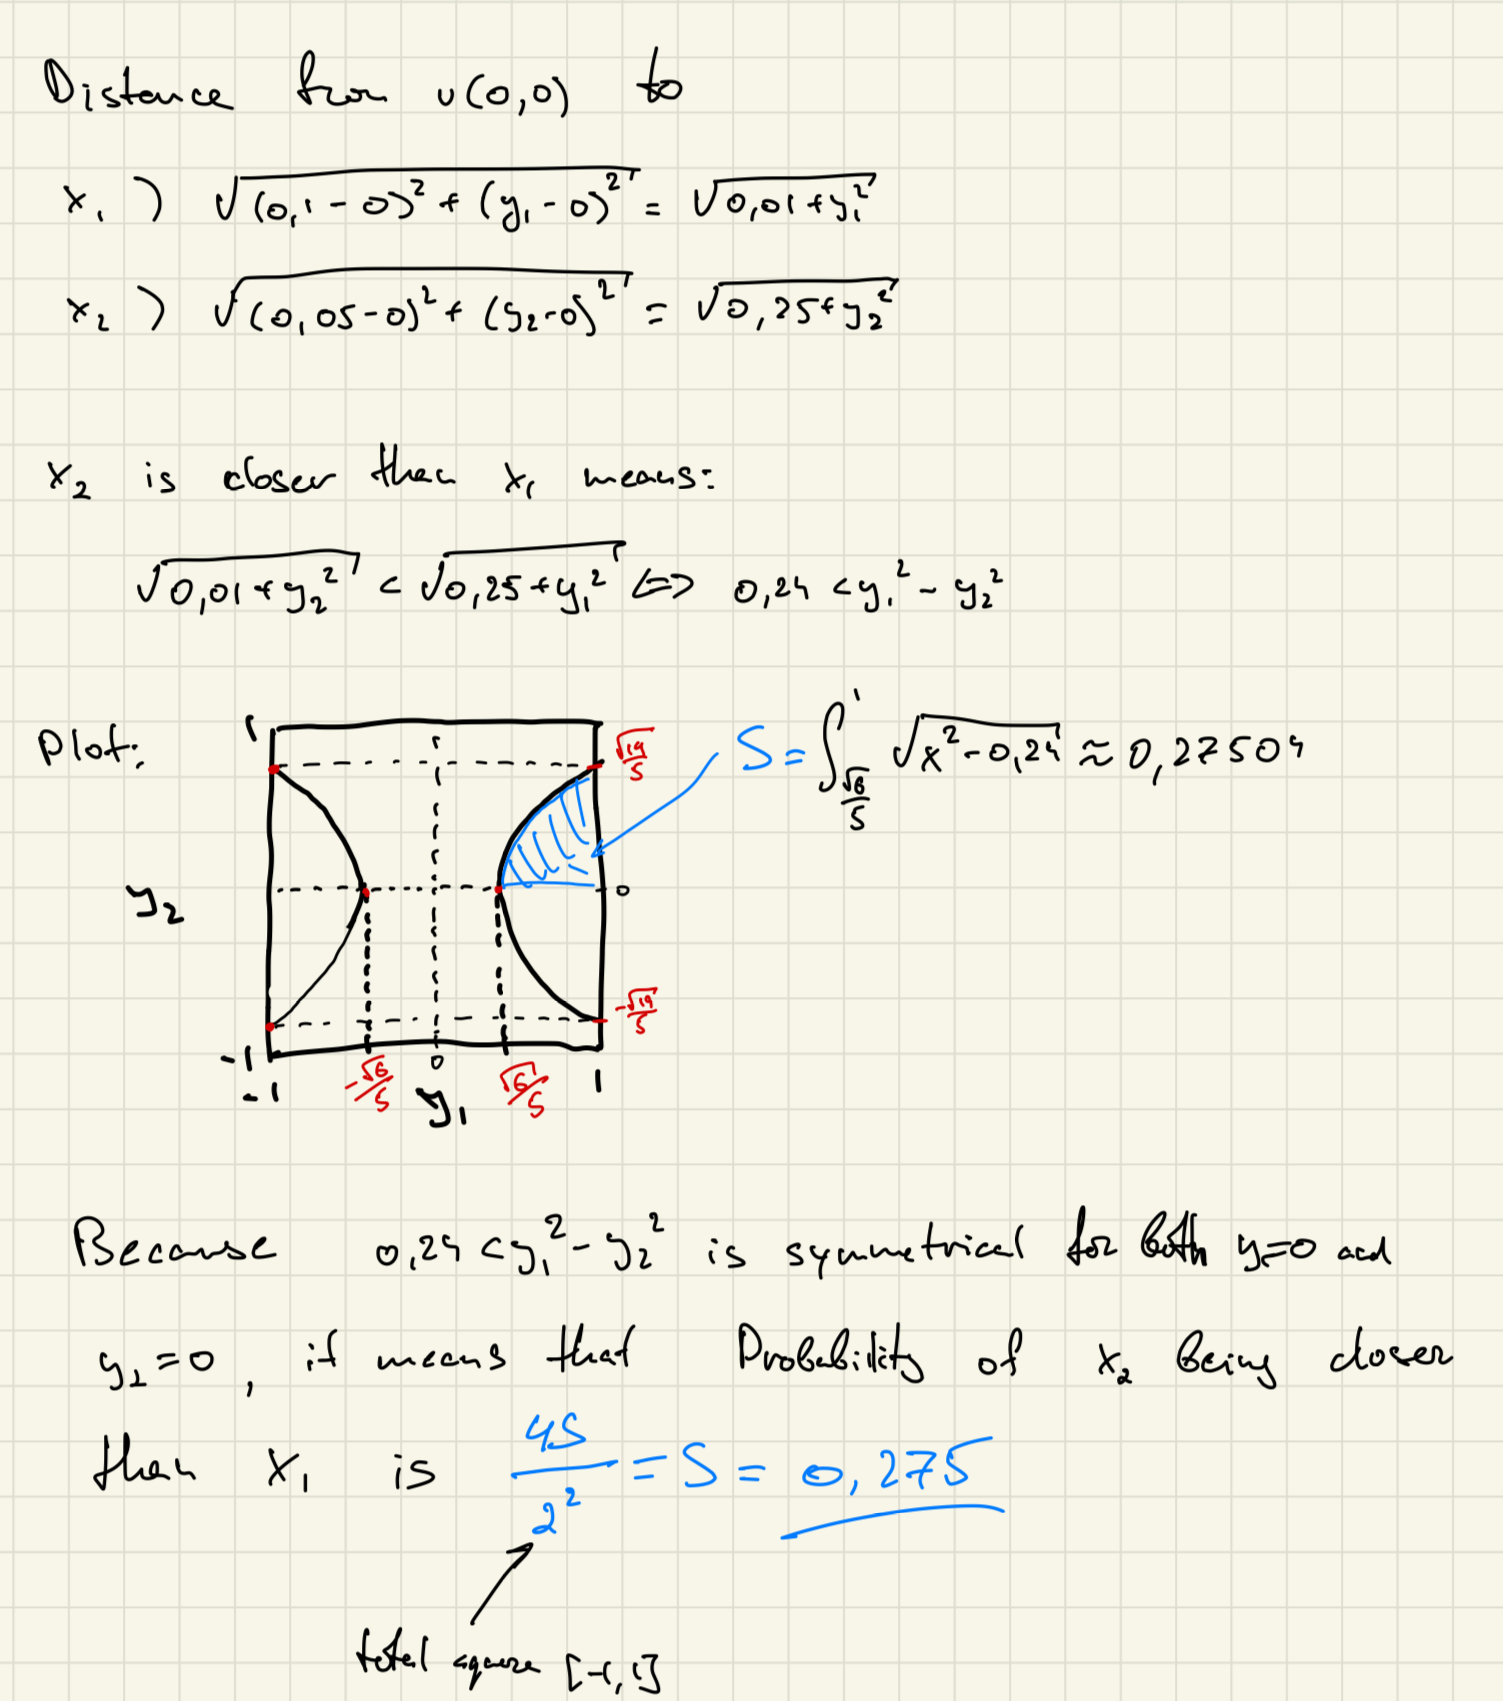 Distance from u(0,0) to
x₁) √((0,1-0)² + (y₁-0)²) = √(0,01+y₁²)
x₂) √((0,05-0)² + (y₂-0)²) = √(0,25+y₂²)
x₂ is closer then x₁ means:
√(0,01+y₂²) < √(0,25+y₁²) <=> 0,24 < y₁² - y₂²
Plot:
1
√19/5
S = ∫_{√6/5}^{1} √(x²-0,24) ≈ 0,27504
y₂
0
-√19/5
-1
-1
-√6/5
0
y₁
√6/5
1
Because 0,24 < y₁² - y₂² is symmetrical for both y₁=0 and
y₂=0, it means that Probability of x₂ being closer
than x₁ is 4S/2² = S = 0,275
total square [-1,1]